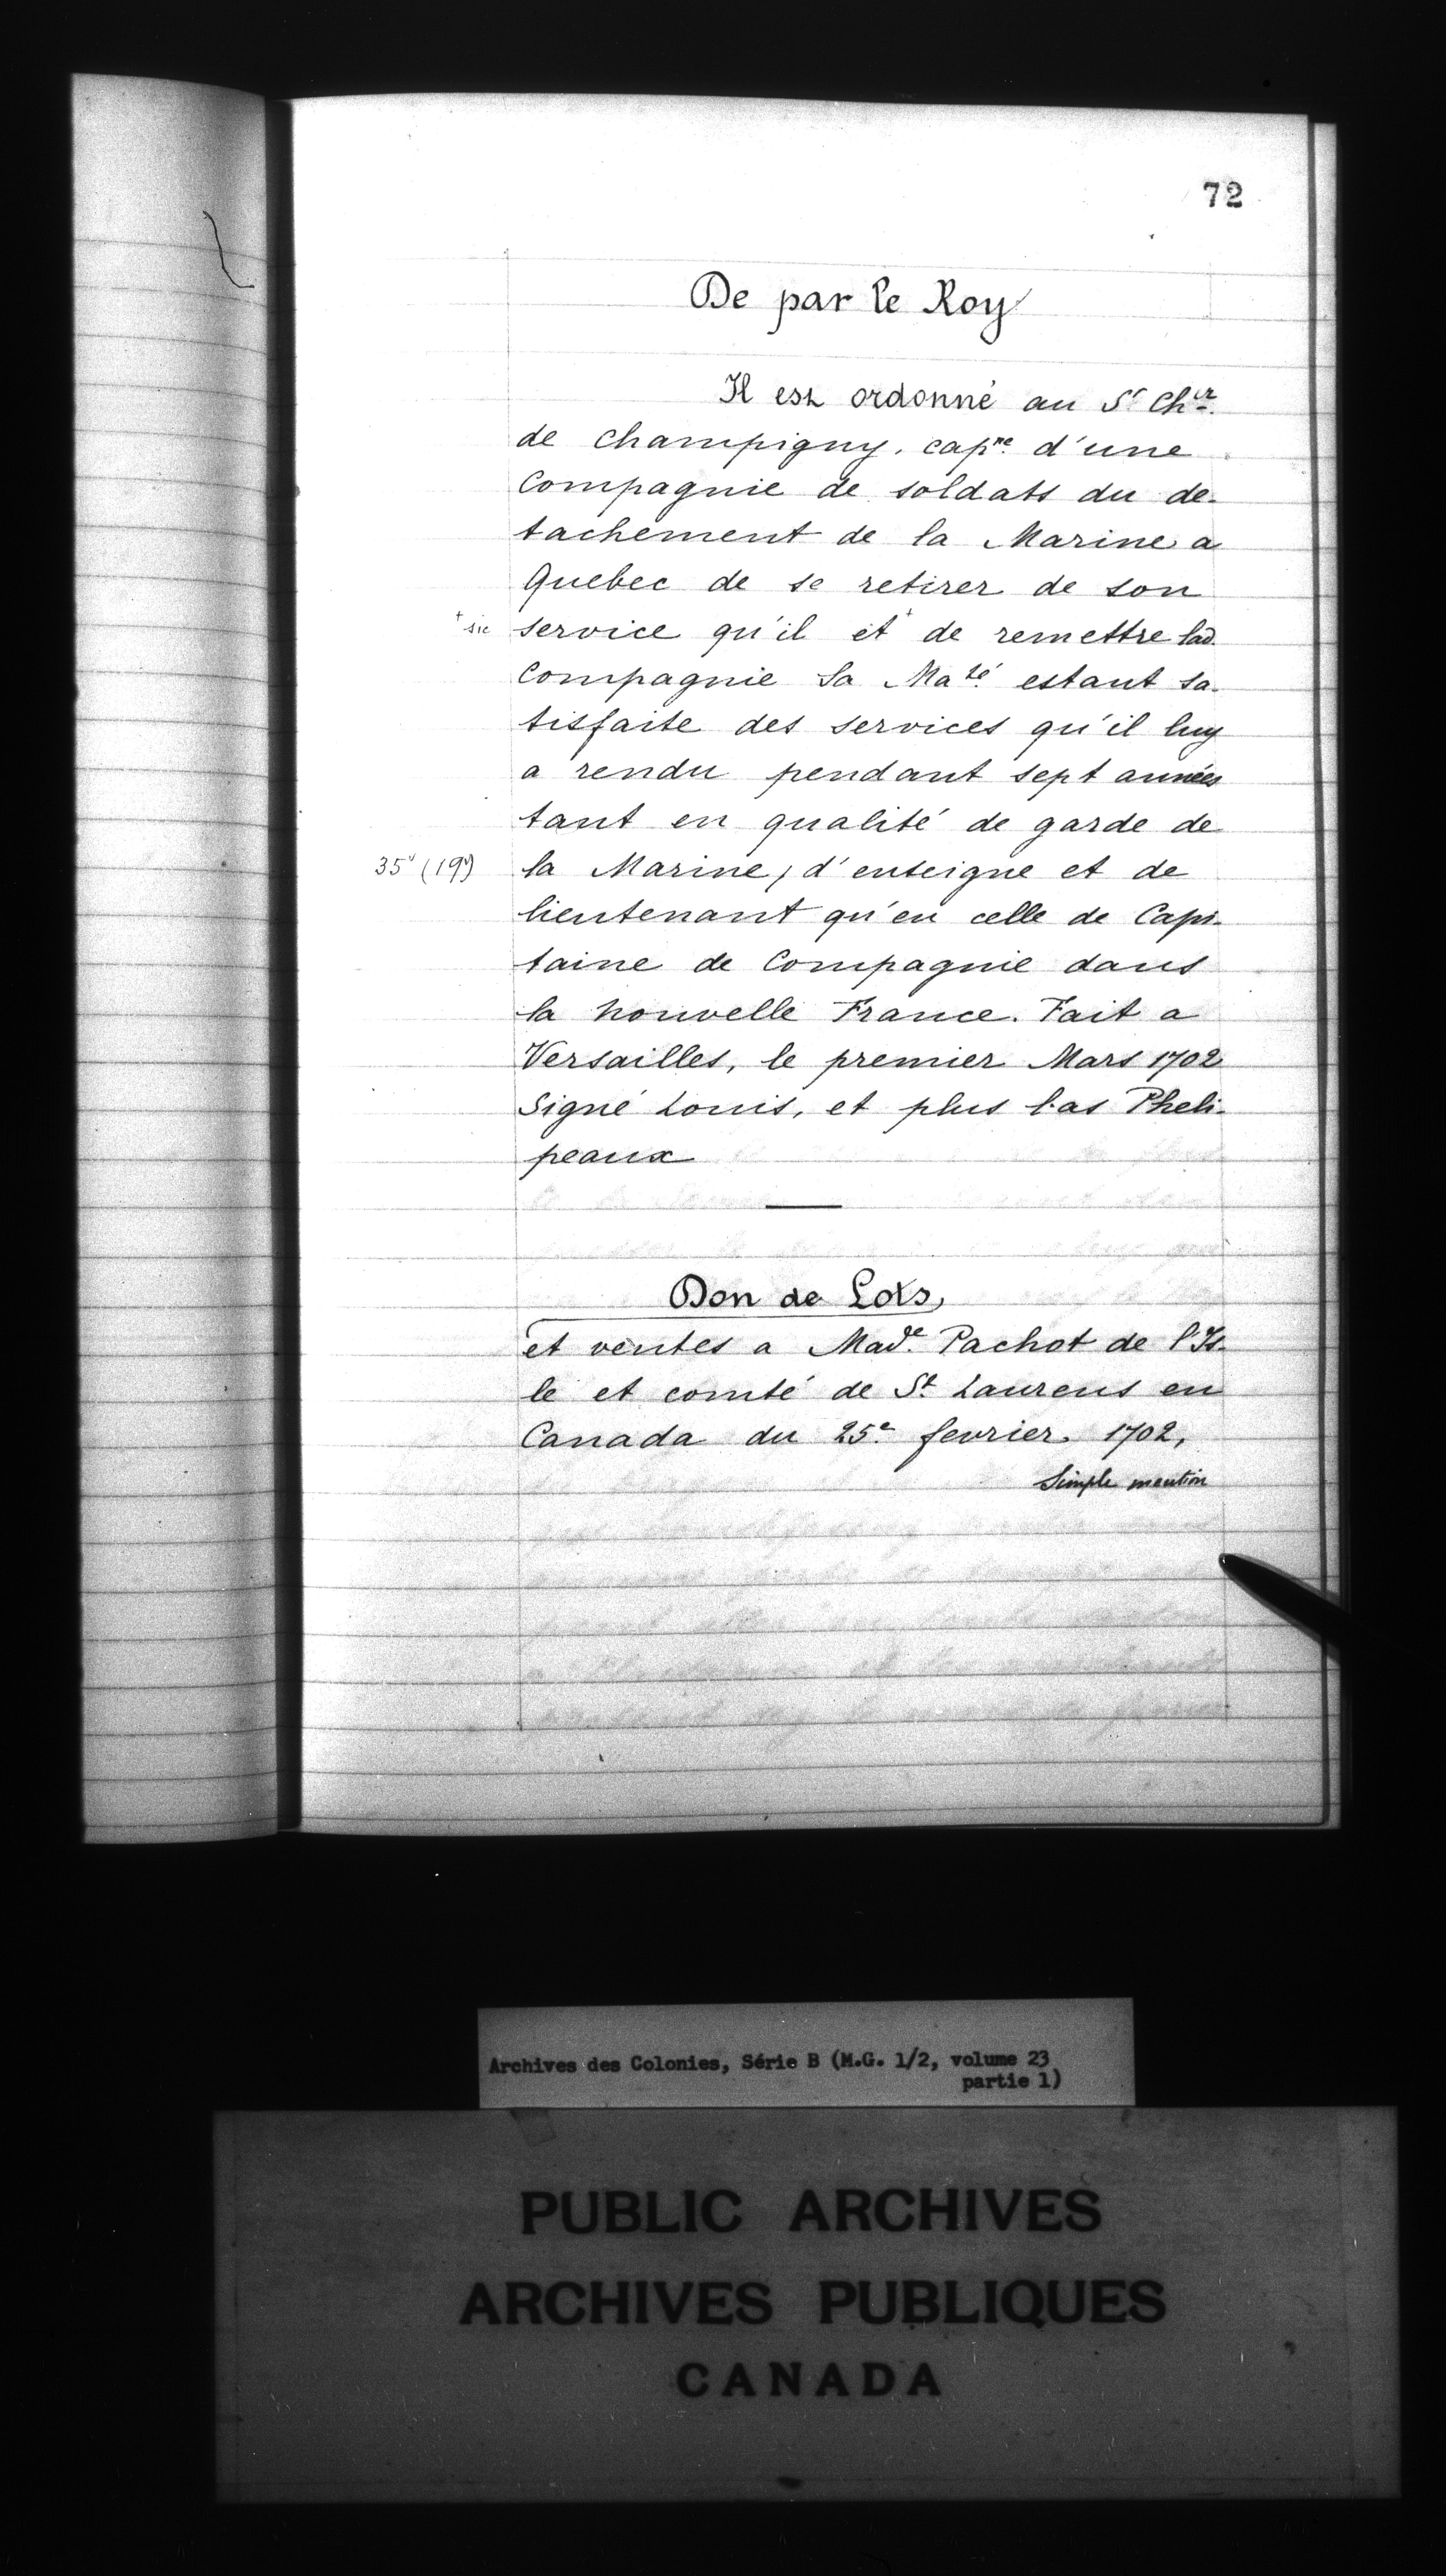 72
De par le Roy
Il est ordonné au Sr Cher
de Champigny. capne d'une
Compagnie de soldats du de-
tachement de la Marine a
Quebec de se retirer de son
+ sic service qu'il et + de remettre lad.
Compagnie Sa Maté estant sa-
tisfaite des services qu'il luy
a rendu pendant sept années
tant en qualité de garde de
35v (19v) la Marine, d'enseigne et de
lieutenant qu'en celle de Capi-
taine de Compagnie dans
la nouvelle France. Fait a
Versailles, le premier Mars 1702
Signé Louis, et plus bas Pheli-
peaux
Don de Lots,
et ventes a Made. Pachot de l'Is-
le et comté de St Laurens en
Canada du 25e fevrier. 1702,
Simple mention
Archives des Colonies, Série B (M.G. 1/2, volume 23
partie 1)
PUBLIC ARCHIVES
ARCHIVES PUBLIQUES
CANADA